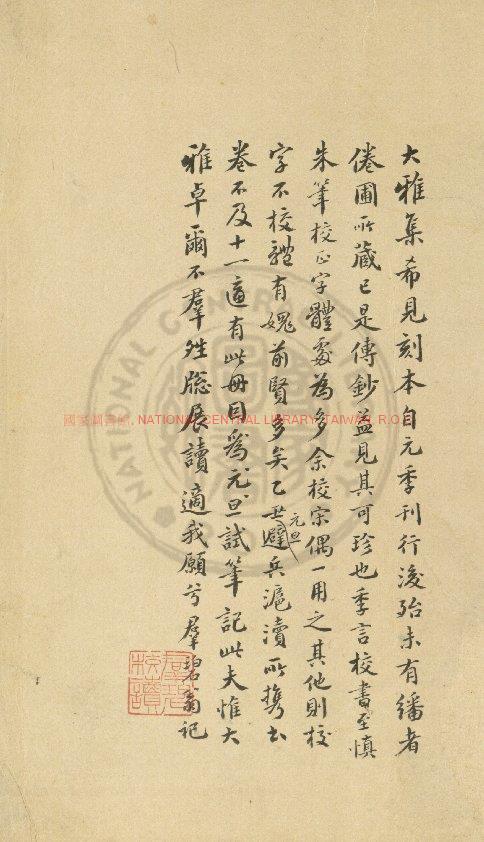 大雅集希見刻本自元季刊行後殆未有繙者
倦圃所藏已是傳鈔益見其可珍也季言校書至慎
朱筆校正字體處為多余校宋偶一用之其他則校
字不校體有媿前賢多矣乙丑元旦避兵滬瀆所攜書
卷不及十一適有此冊因爲元旦試筆記此夫惟大
雅卓爾不羣牕展讀適我願兮羣碧翁記
羣碧校讀
國家圖書館, NATIONAL CENTRAL LIBRARY, TAIWAN, R.O.C
NATIONAL CENTRAL LIBRARY